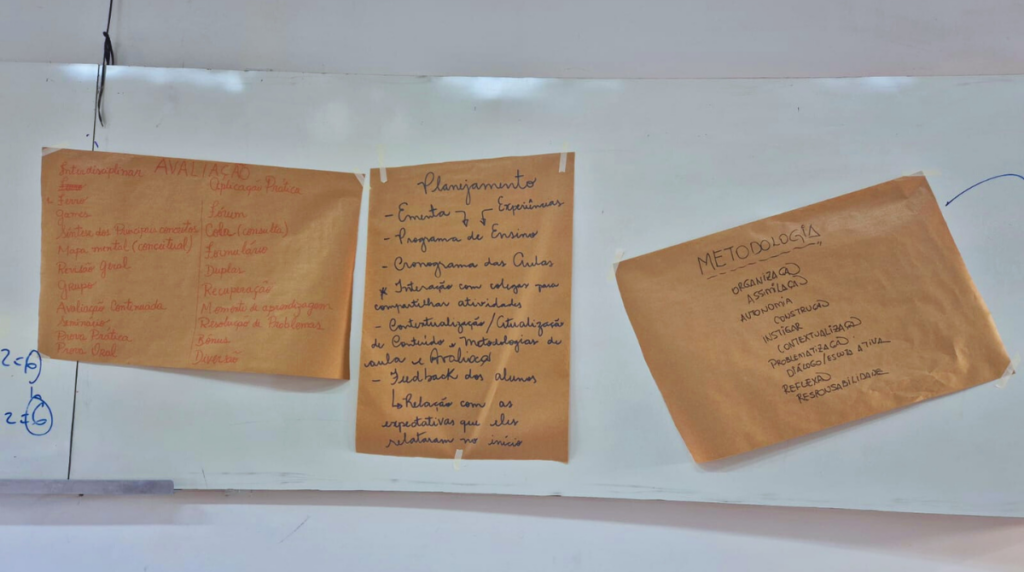 AVALIAÇÃO
Interdisciplinar
Jogos
Games
Síntese dos Principais conceitos
Mapa mental (conceitual)
Revisão Geral
Grupo
Avaliação Continuada
Seminários
Prova Prática
Prova Oral
Aplicação Prática
Fórum
Cola (consulta)
Formulário
Duplas
Recuperação
Momento de aprendizagem
Resolução de Problemas
Bônus
Diversão
Planejamento
- Ementa Experiências
- Programa de Ensino
- Cronograma das Aulas
* Interação com colegas para
compartilhar atividades
- Contextualização/Atualização
de Conteúdo e Metodologias de
aula e Avaliação
- Feedback dos alunos
↳ Relação com as
expectativas que eles
relataram no início
METODOLOGIA
ORGANIZAÇÃO
ASSIMILAÇÃO
AUTONOMIA
CONSTRUÇÃO
INSTIGAR
CONTEXTUALIZAÇÃO
PROBLEMATIZAÇÃO
DIÁLOGO/ESCUTA ATIVA
REFLEXÃO
RESPONSABILIDADE
2=6
2=6